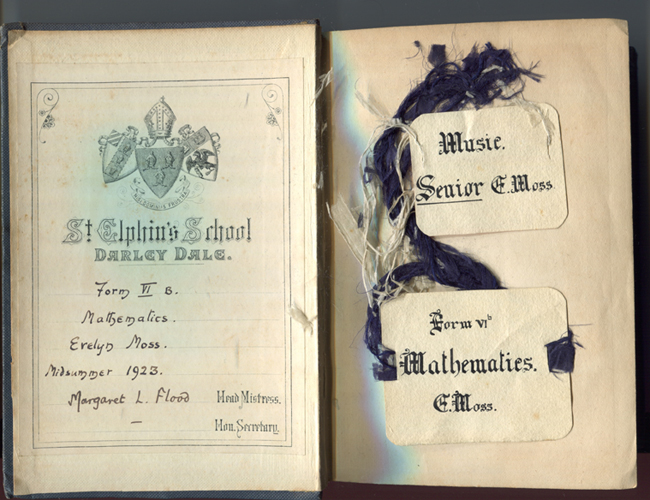 St Elphin's School
DARLEY DALE.
Form VI B.
Mathematics.
Evelyn Moss.
Midsummer 1923.
Margaret L. Flood Head Mistress.
Hon. Secretary.
Music.
Senior E. Moss.
Form VIb
Mathematics.
E. Moss.